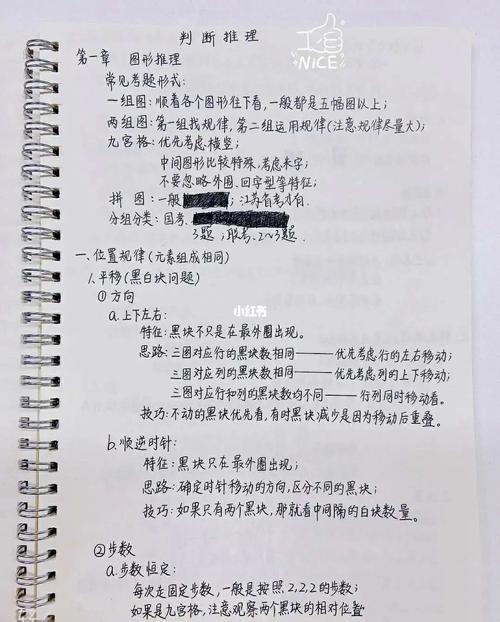 判断推理
NICE
第一章 图形推理
常见考题形式:
一组图:顺着各个图形往下看,一般都是五幅图以上;
两组图:第一组找规律,第二组运用规律(注意:规律尽量大);
九宫格:优先考虑横竖;
中间图形比较特殊,考虑米字;
不要忽略外围、回字型等特征;
拼图:一般;江苏省考才有.
分组分类:国考.
3题;联考.2~3题.
一、位置规律(元素组成相同)
1.平移(黑白块问题)
①方向
a.上下左右:
特征:黑块不只是在最外圈出现。
小红书
思路:三图对应行的黑块数相同——优先考虑行的左右移动;
三图对应列的黑块数相同——优先考虑列的上下移动;
三图对应行和列的黑块数均不同——行列同时移动看。
技巧:不动的黑块优先看,有时黑块减少是因为移动后重叠。
b.顺逆时针:
特征:黑块只在最外圈出现;
思路:确定时针移动的方向,区分不同的黑块;
技巧:如果只有两个黑块,那就看中间隔的白块数量。
②步数
a.步数恒定:
每次走固定步数,一般是按照2,2,2的步数;
如果是九宫格,注意观察两个黑块的相对位置